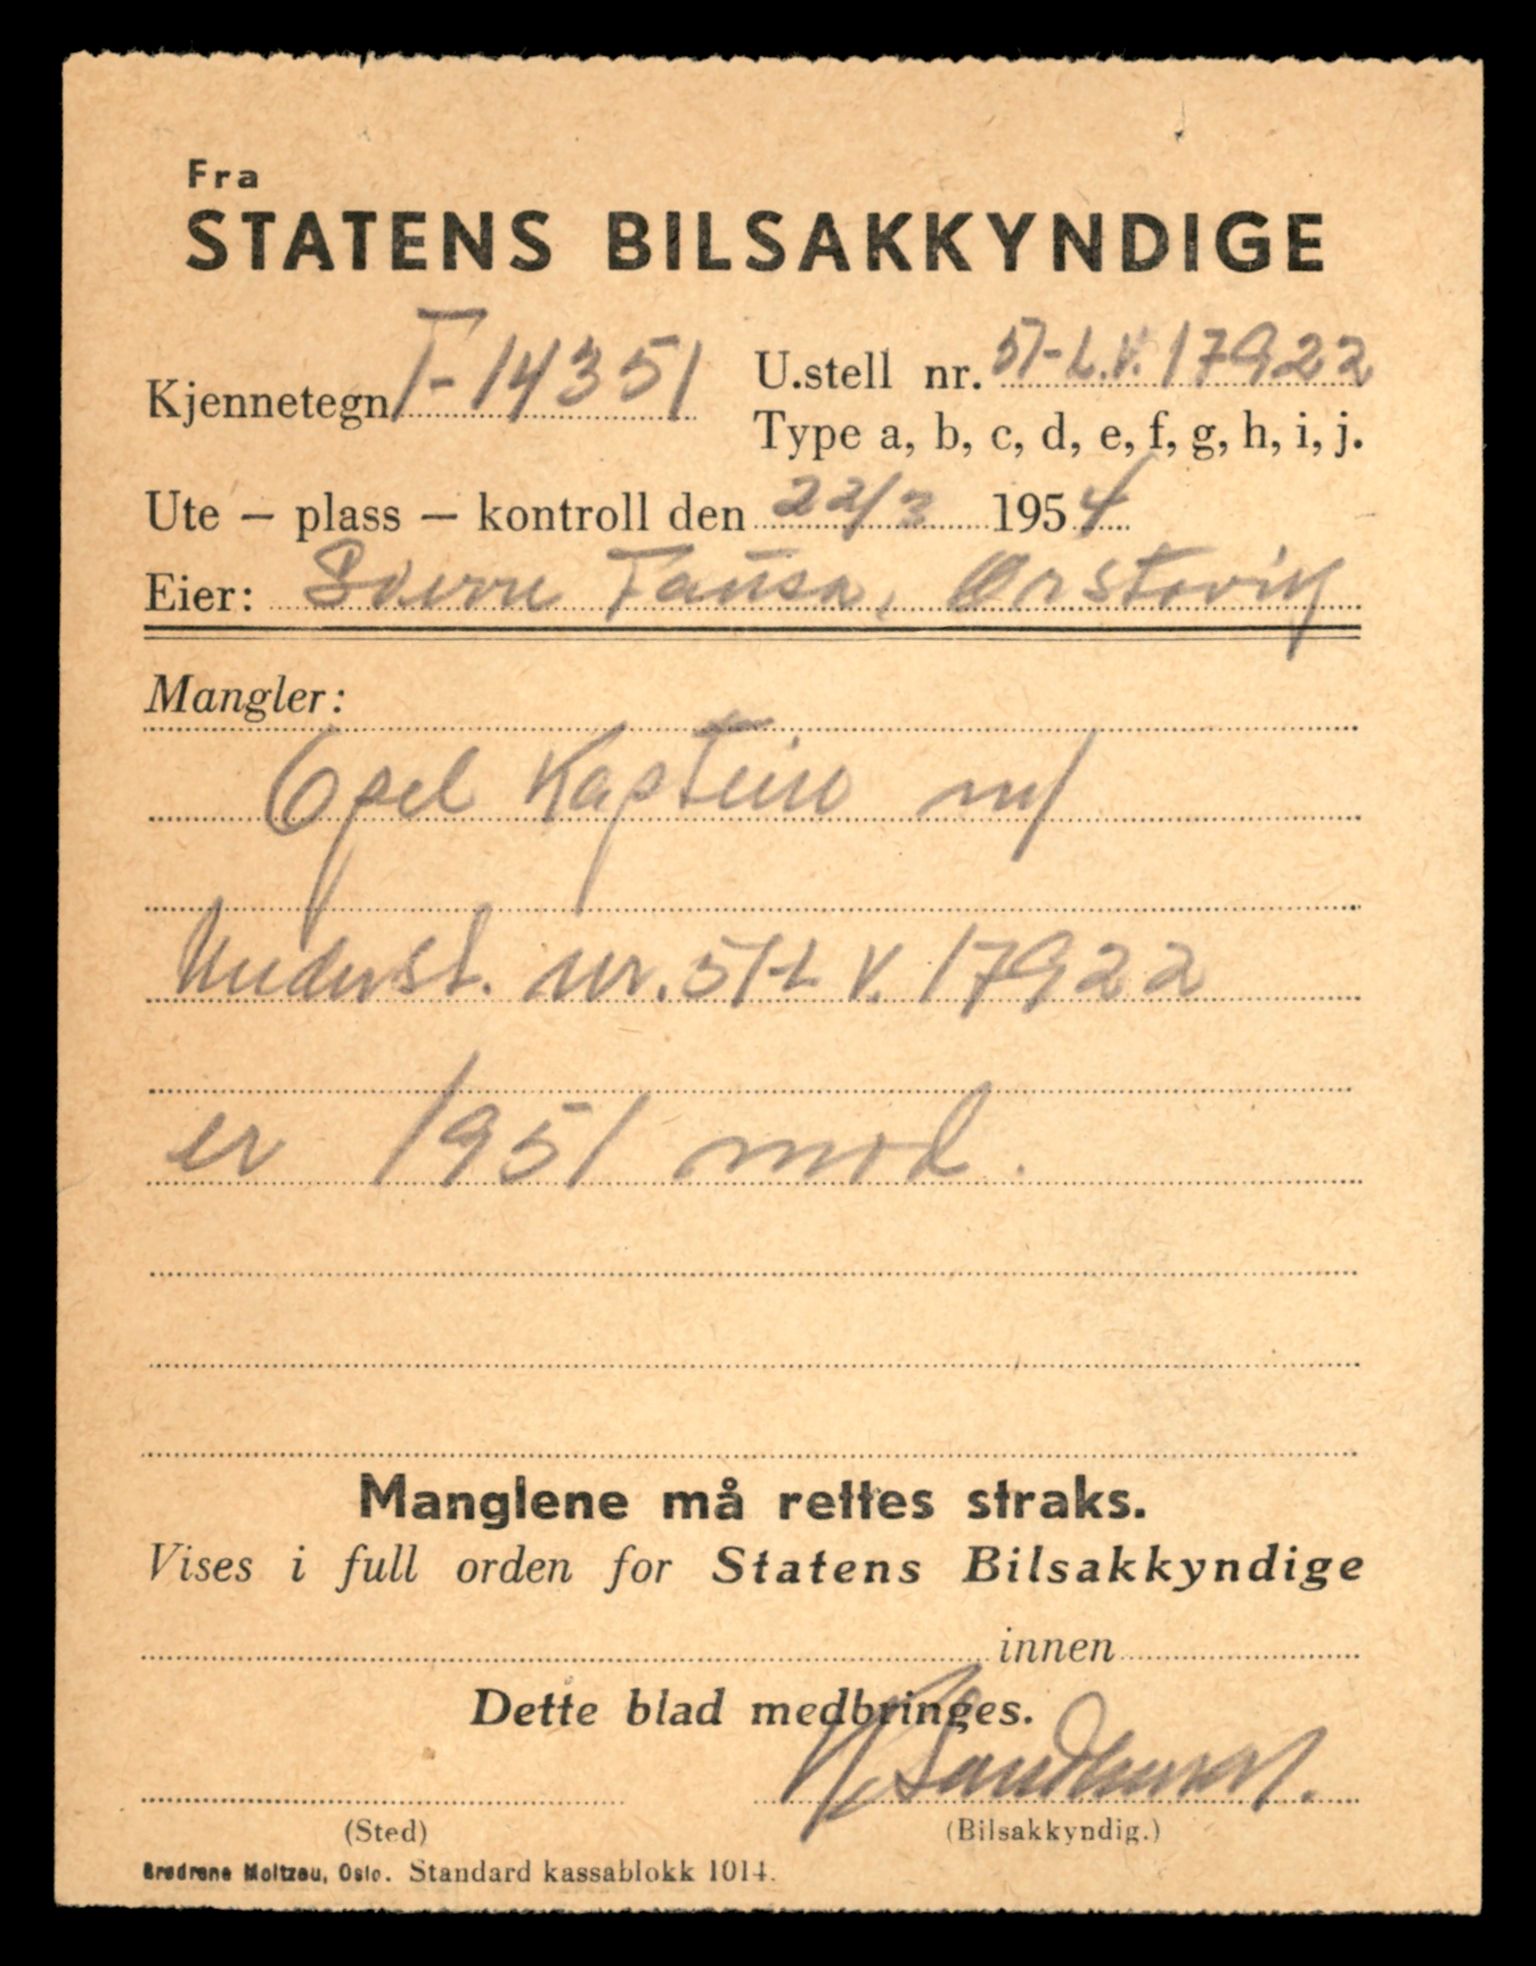 Fra
STATENS BILSAKKYNDIGE
Kjennetegn T-14351
U.stell nr. 51-L.V. 17922
Type a, b, c, d, e, f, g, h, i, j.
Ute – plass – kontroll den 22/3 1954
Eier: Sverre Tausa, Ørstavik
Mangler:
Opel Kaptein m/
Underst. nr. 51-L V. 17922
er 1951 mod.
Manglene må rettes straks.
Vises i full orden for Statens Bilsakkyndige
innen
Dette blad medbringes.
(Sted)
(Bilsakkyndig.)
Brødrene Moltzau, Oslo. Standard kassablokk 1014.